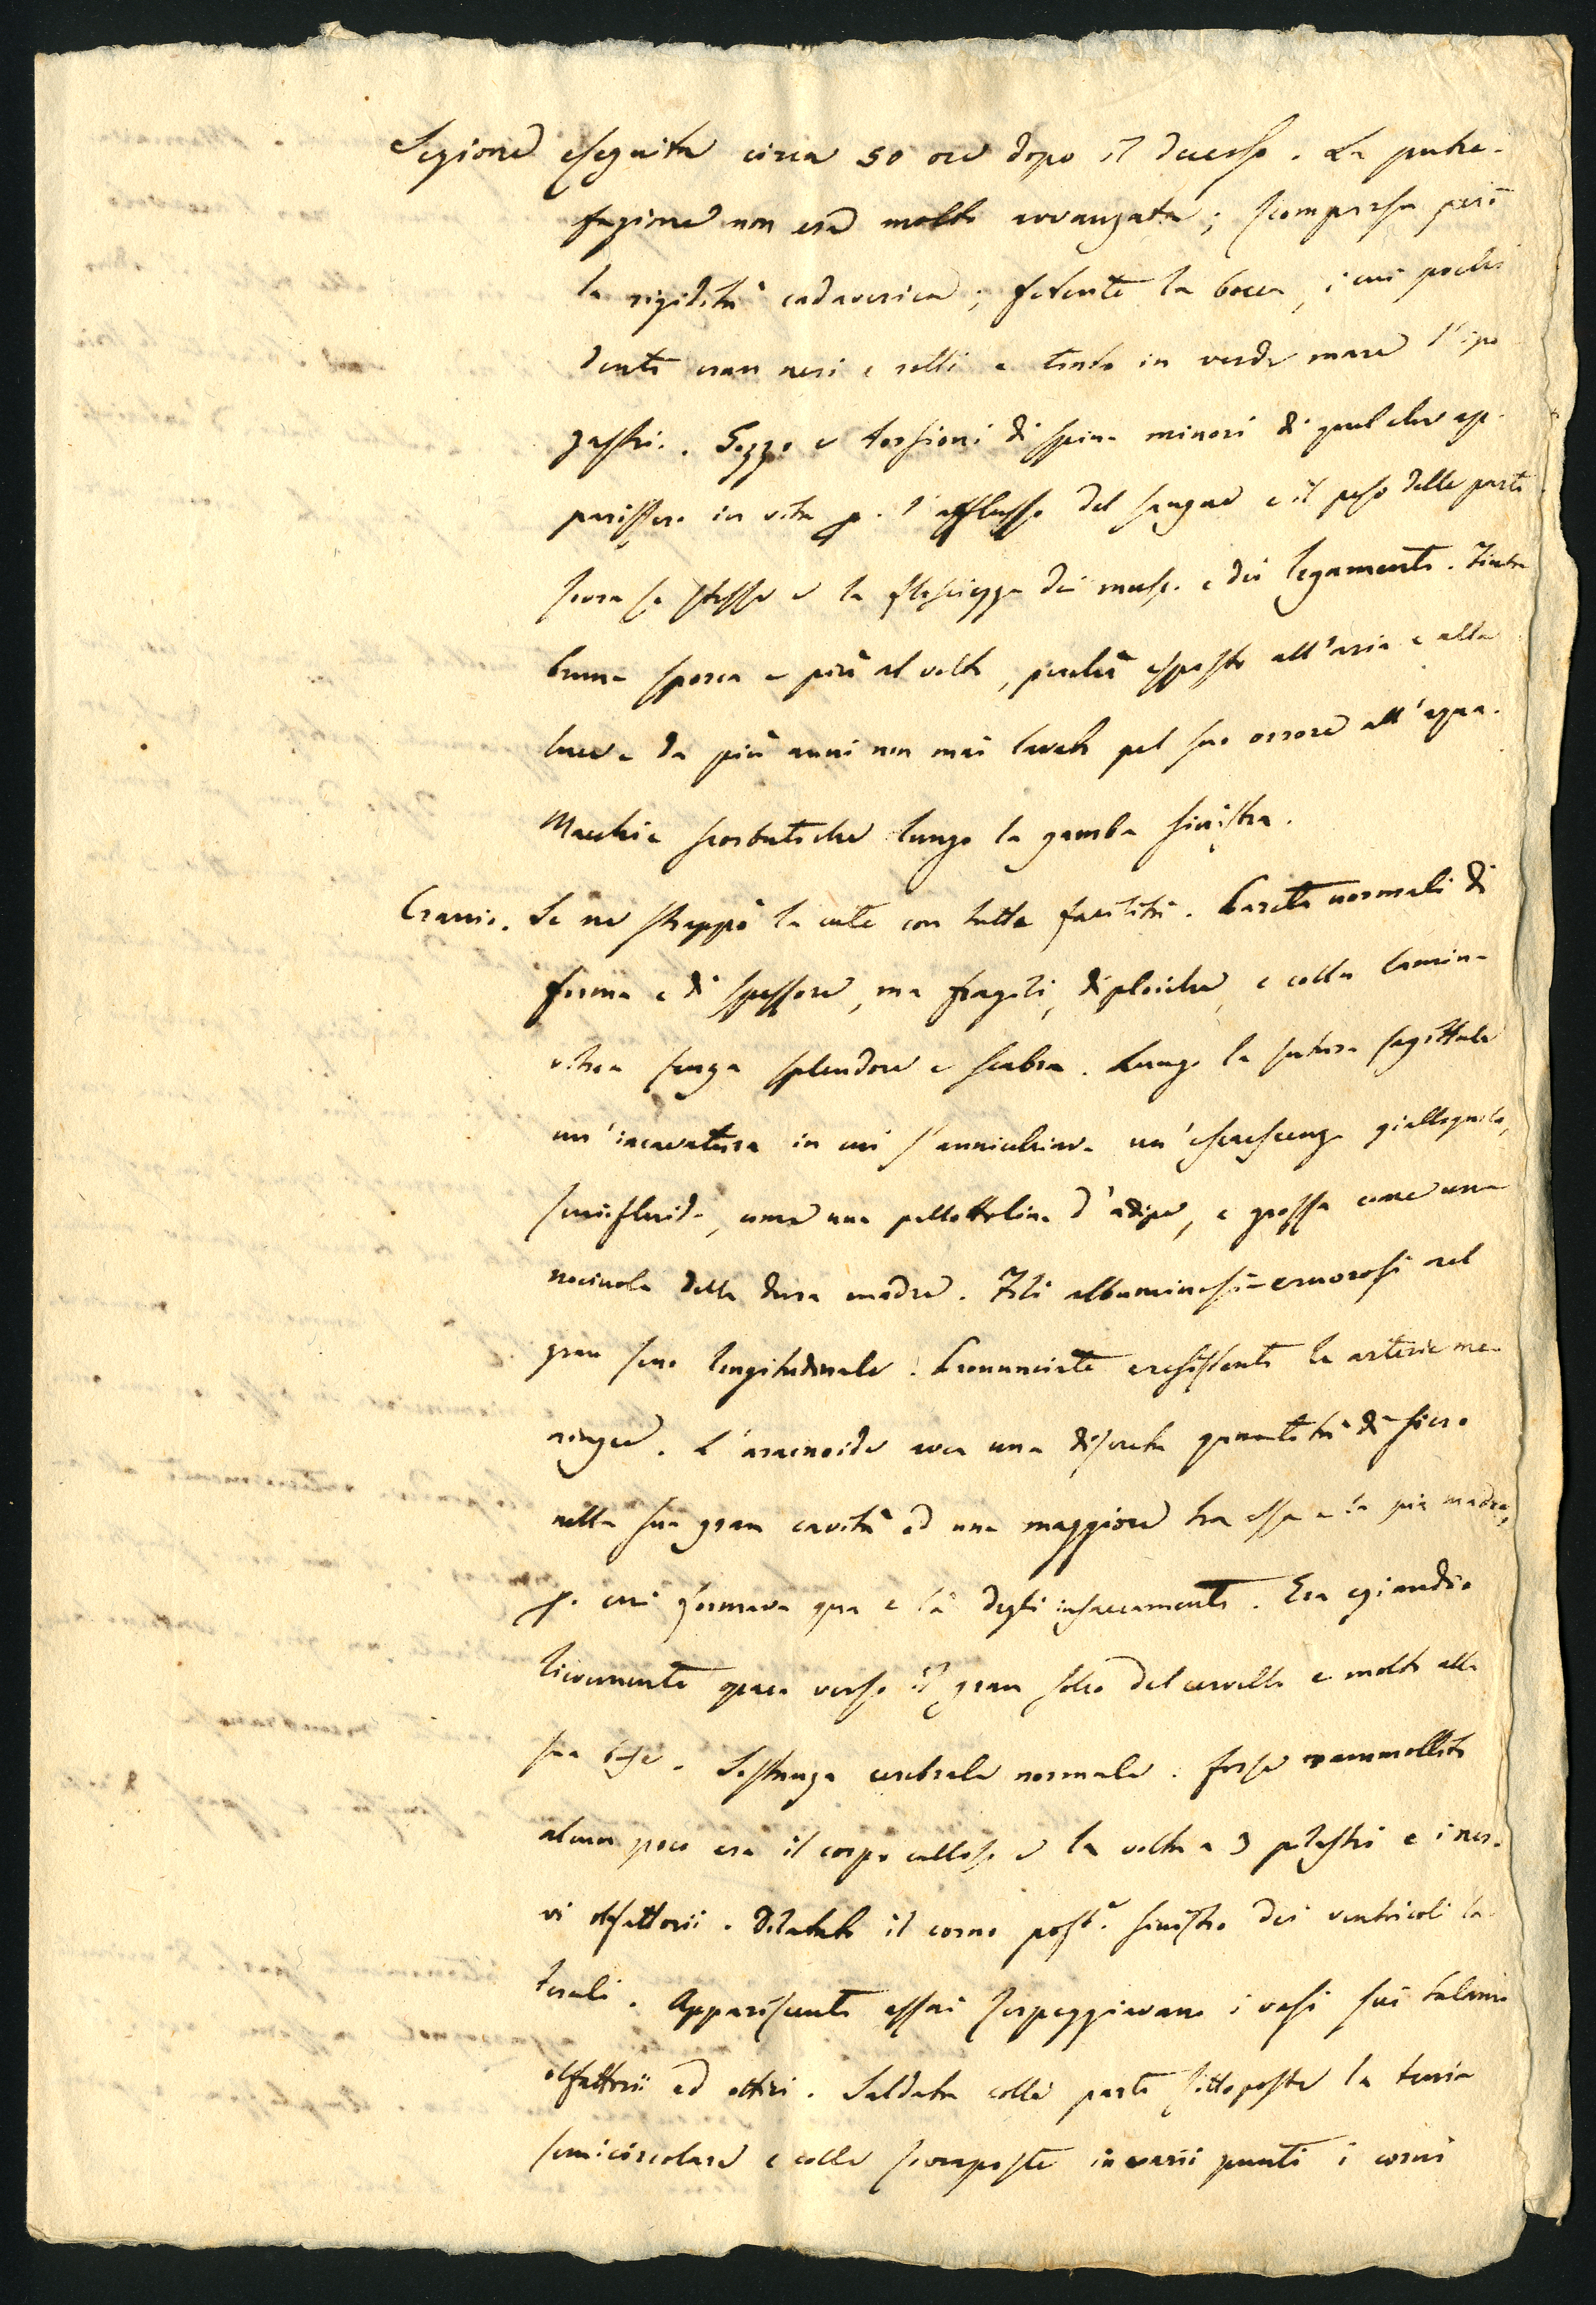 Sezione eseguita circa 50 ore dopo il decesso. La putre-
fazione non era molto avvanzata; scomparsa però
la rigidità cadaverica; fetente la bocca, i cui pochi
denti eran neri e rotti e tinto in verde mare l'ipo
gastri. . Gozzo e torsioni di spina minori di quel che ap-
parissero in vita p. l'afflusso del sangue e il peso delle parti
sovra se stesse e la flosciezza dei musc. e dei legamenti. Tinta
bruna sporca e più al volto, perchè esposto all'aria e alla
luce e da più anni non mai lavato pel suo orrore all'aqua.
Macchie scorbutiche lungo la gamba sinistra.
Cranio. Se ne strappò la cute con tutta facilità. Pareti normali di
forma e di spessore, ma fragili, diploiche, e colla lamina
vitrea senza splendore e scabra. Lungo la sutura sagittale
un'incavatura in cui s'annicchiava un'escrescenza giallognola,
semifluida, come una pallottolina d'adipe, e grossa come una
nocciuola della dura madre. Fili albuminosi-cruorosi nel
gran seno longitudinale. Pronunciate e resistenti le arterie me-
ningee. L'aracnoide avea una discreta quantità di siero
nella sua gran cavità ed una maggiore tra essa e la pia madre,
p. cui formava qua e là degli insaccamenti. Era eziandio
lievemente opaca verso il gran solco del cervello e molto alla
sua base. Sostanza cerebrale normale. forse rammollito
alcun poco era il corpo calloso e la volta a 3 pilastri e i ner-
vi olfattorii. Dilatato il corno post.e sinistro dei ventricoli la-
terali. Appariscenti assai serpeggiavano i vasi sui talami
olfattorii ed ottici. Saldata colle parti sottoposte la tenia
semicircolare e colle sovraposte in varii punti i corni